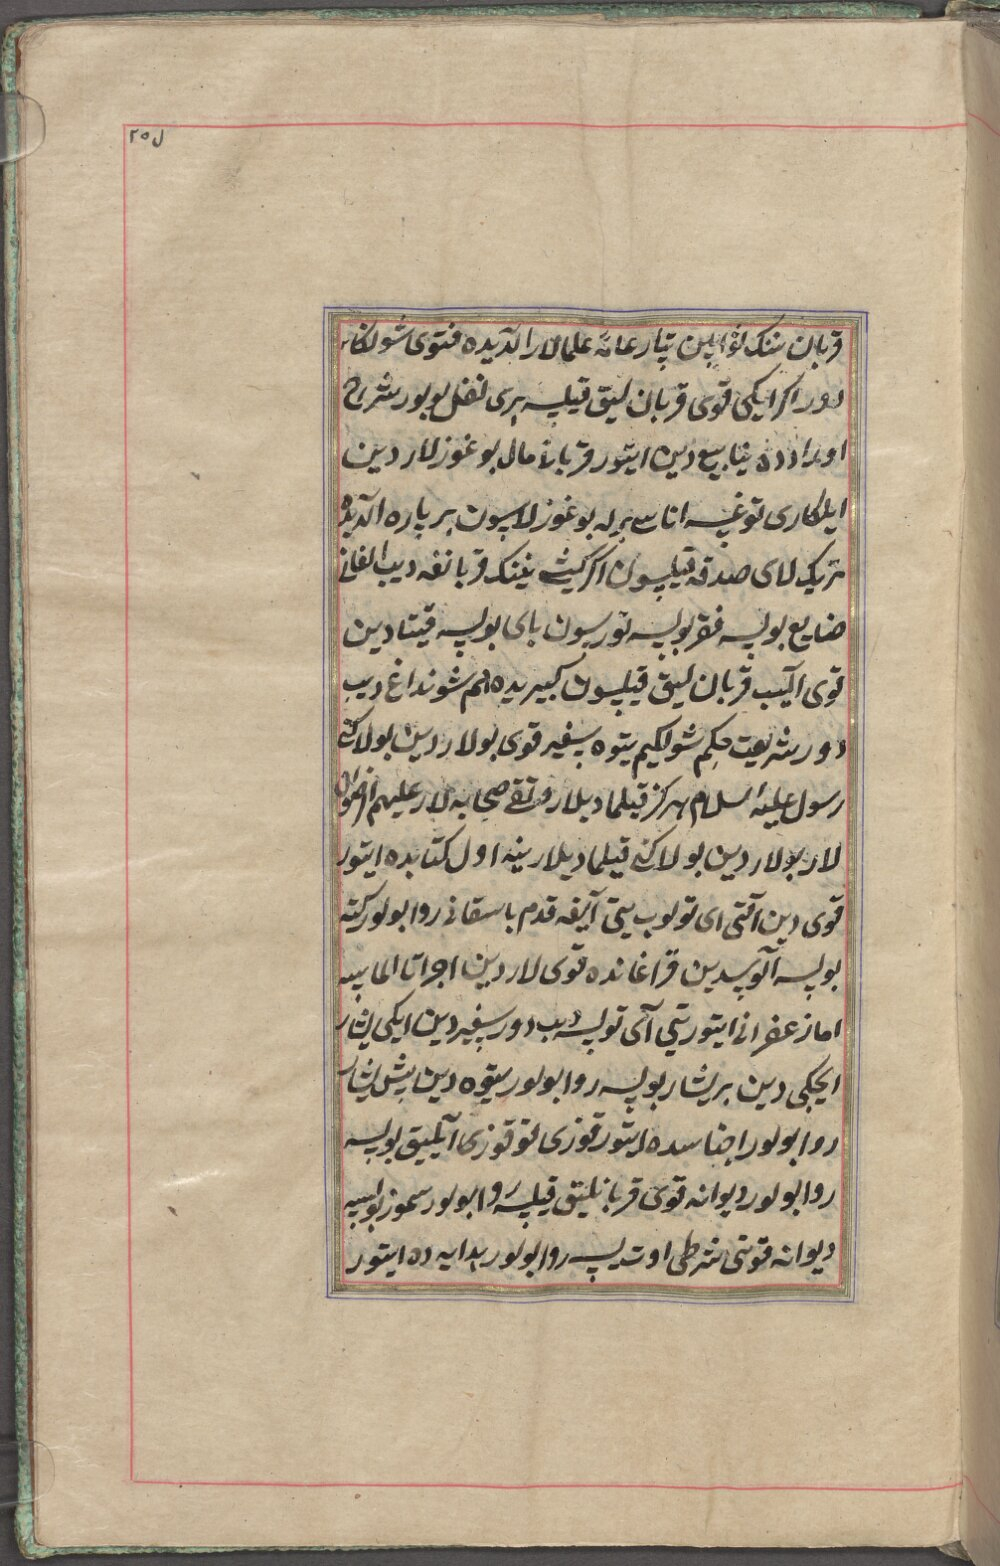 ل ٢٥
قربان ننک ثوابین تپار عامّه علمالار الدیده فتوی شولکا
دور اکر ایکی قوی قربان لیق قیلسه بری نفل بولور شرح
اوراد ده ینابیع دین ایتور قربان مال بوغوزلار دین
ایلکاری توغسه اناسی برله بوغوزلاسون بر پاره الدیده
تریک لای صدقه قیلسون اکر کیشی نینک قربانغه دیب الغان
ضایع بولسه فقیر بولسه تورسون بای بولسه قیتا دین
قوی الیب قربان لیق قیلسون کبیریده هم شونداغ دیب
دور شریعت حکم شولکیم تیوه سغیر قوی بولاردین بولاکنی
رسول علیه السلام هرکز قیلمادیلار و تقی صحابه لار علیهم الرضوان
لار بولاردین بولاکنی قیلمادیلار ینه اول کتابده ایتور
قوی دین آلتی ای تولوب یتی آیغه قدم باسقانی روا بولور کته
بولسه آلوسیدین قراغانده قوی لاردین اجراتا الماسه
اما زعفرانی ایتور یتی آی تولسه دیب دور سغیر دین ایکی یشار
ایچکی دین بر یشار بولسه روا بولور تیوه دین بیش یشار
روا بولور اجناسده ایتور قوزی توققوزی آیلیق بولسه
روا بولور دیوانه قوی قربانلیق قیلسه روا بولور سموز بولسه
دیوانه قوینی شرطی اوت یسه روا بولور هدایه ده ایتور